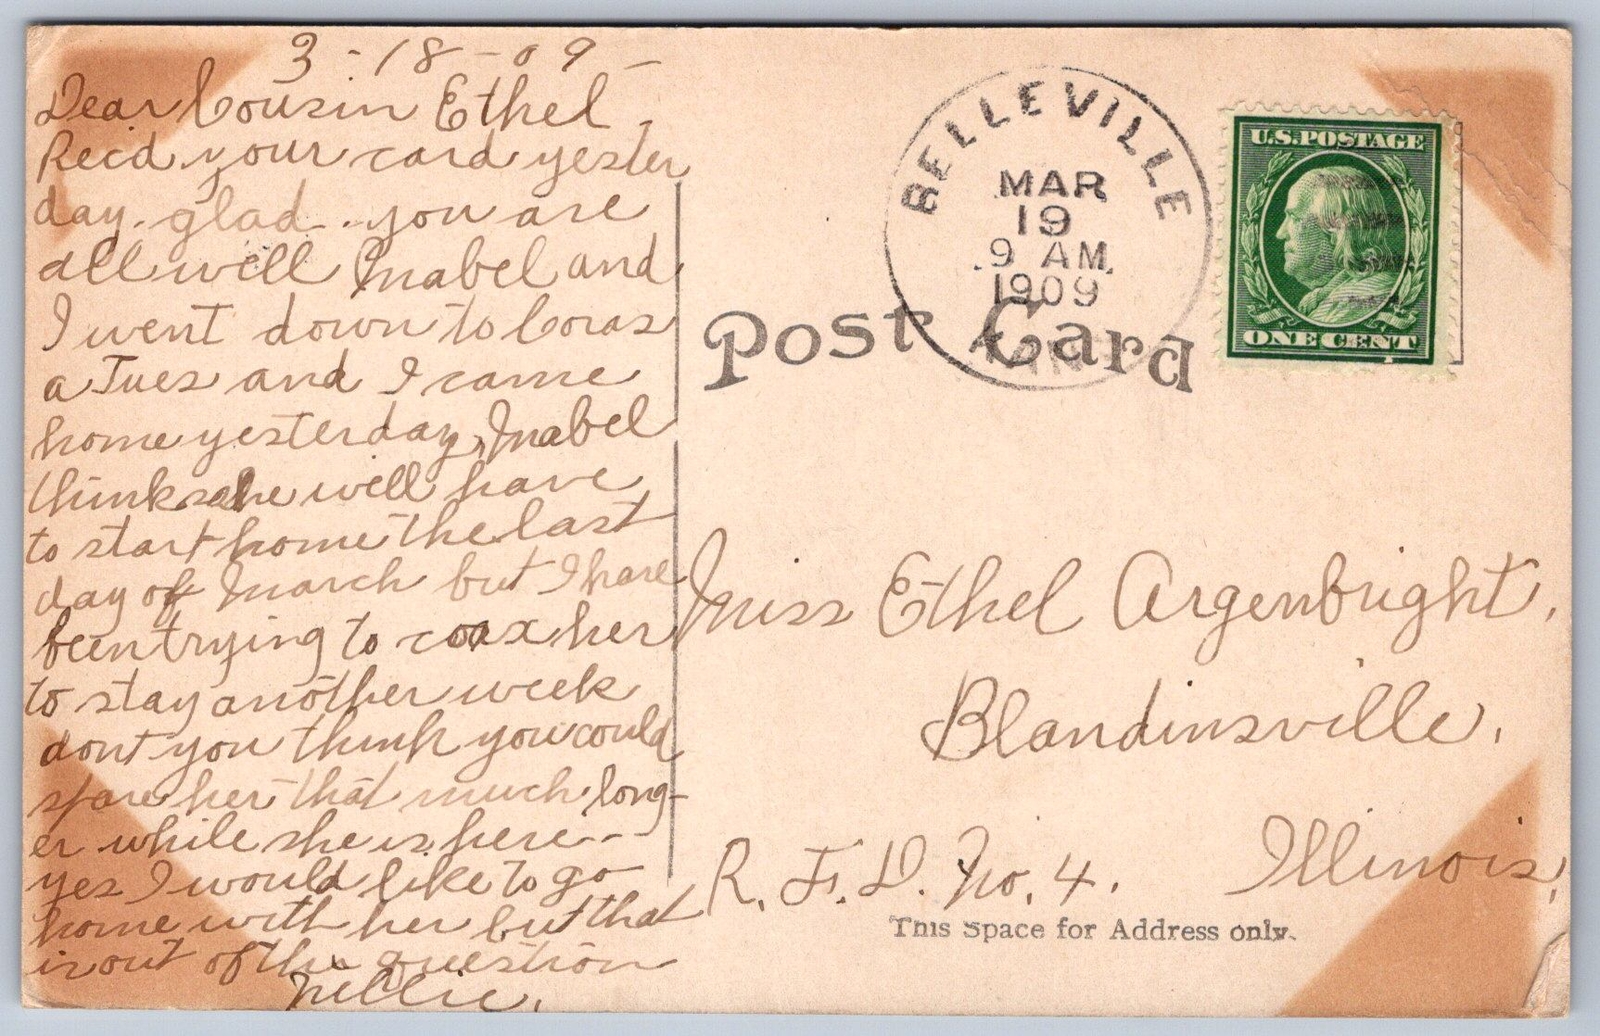 3-18-09-
Dear Cousin Ethel,
Recd your card yester
day. glad you are
all well Mabel and
I went down to Coras
a Tues and I came
home yesterday, Mabel
thinks she will have
to start home the last
day of March but I have
been trying to coax her
to stay another week
dont you think you could
spare her that much long-
er while she is here--
yes I would like to go
home with her but that
is out of the question
Nellie.
BELLEVILLE
MAR
19
9 AM
1909
KANS
U.S. POSTAGE
ONE CENT
Post Card
Miss Ethel Argenbright,
Blandinsville,
R. F. D. No. 4. Illinois,
This Space for Address only.